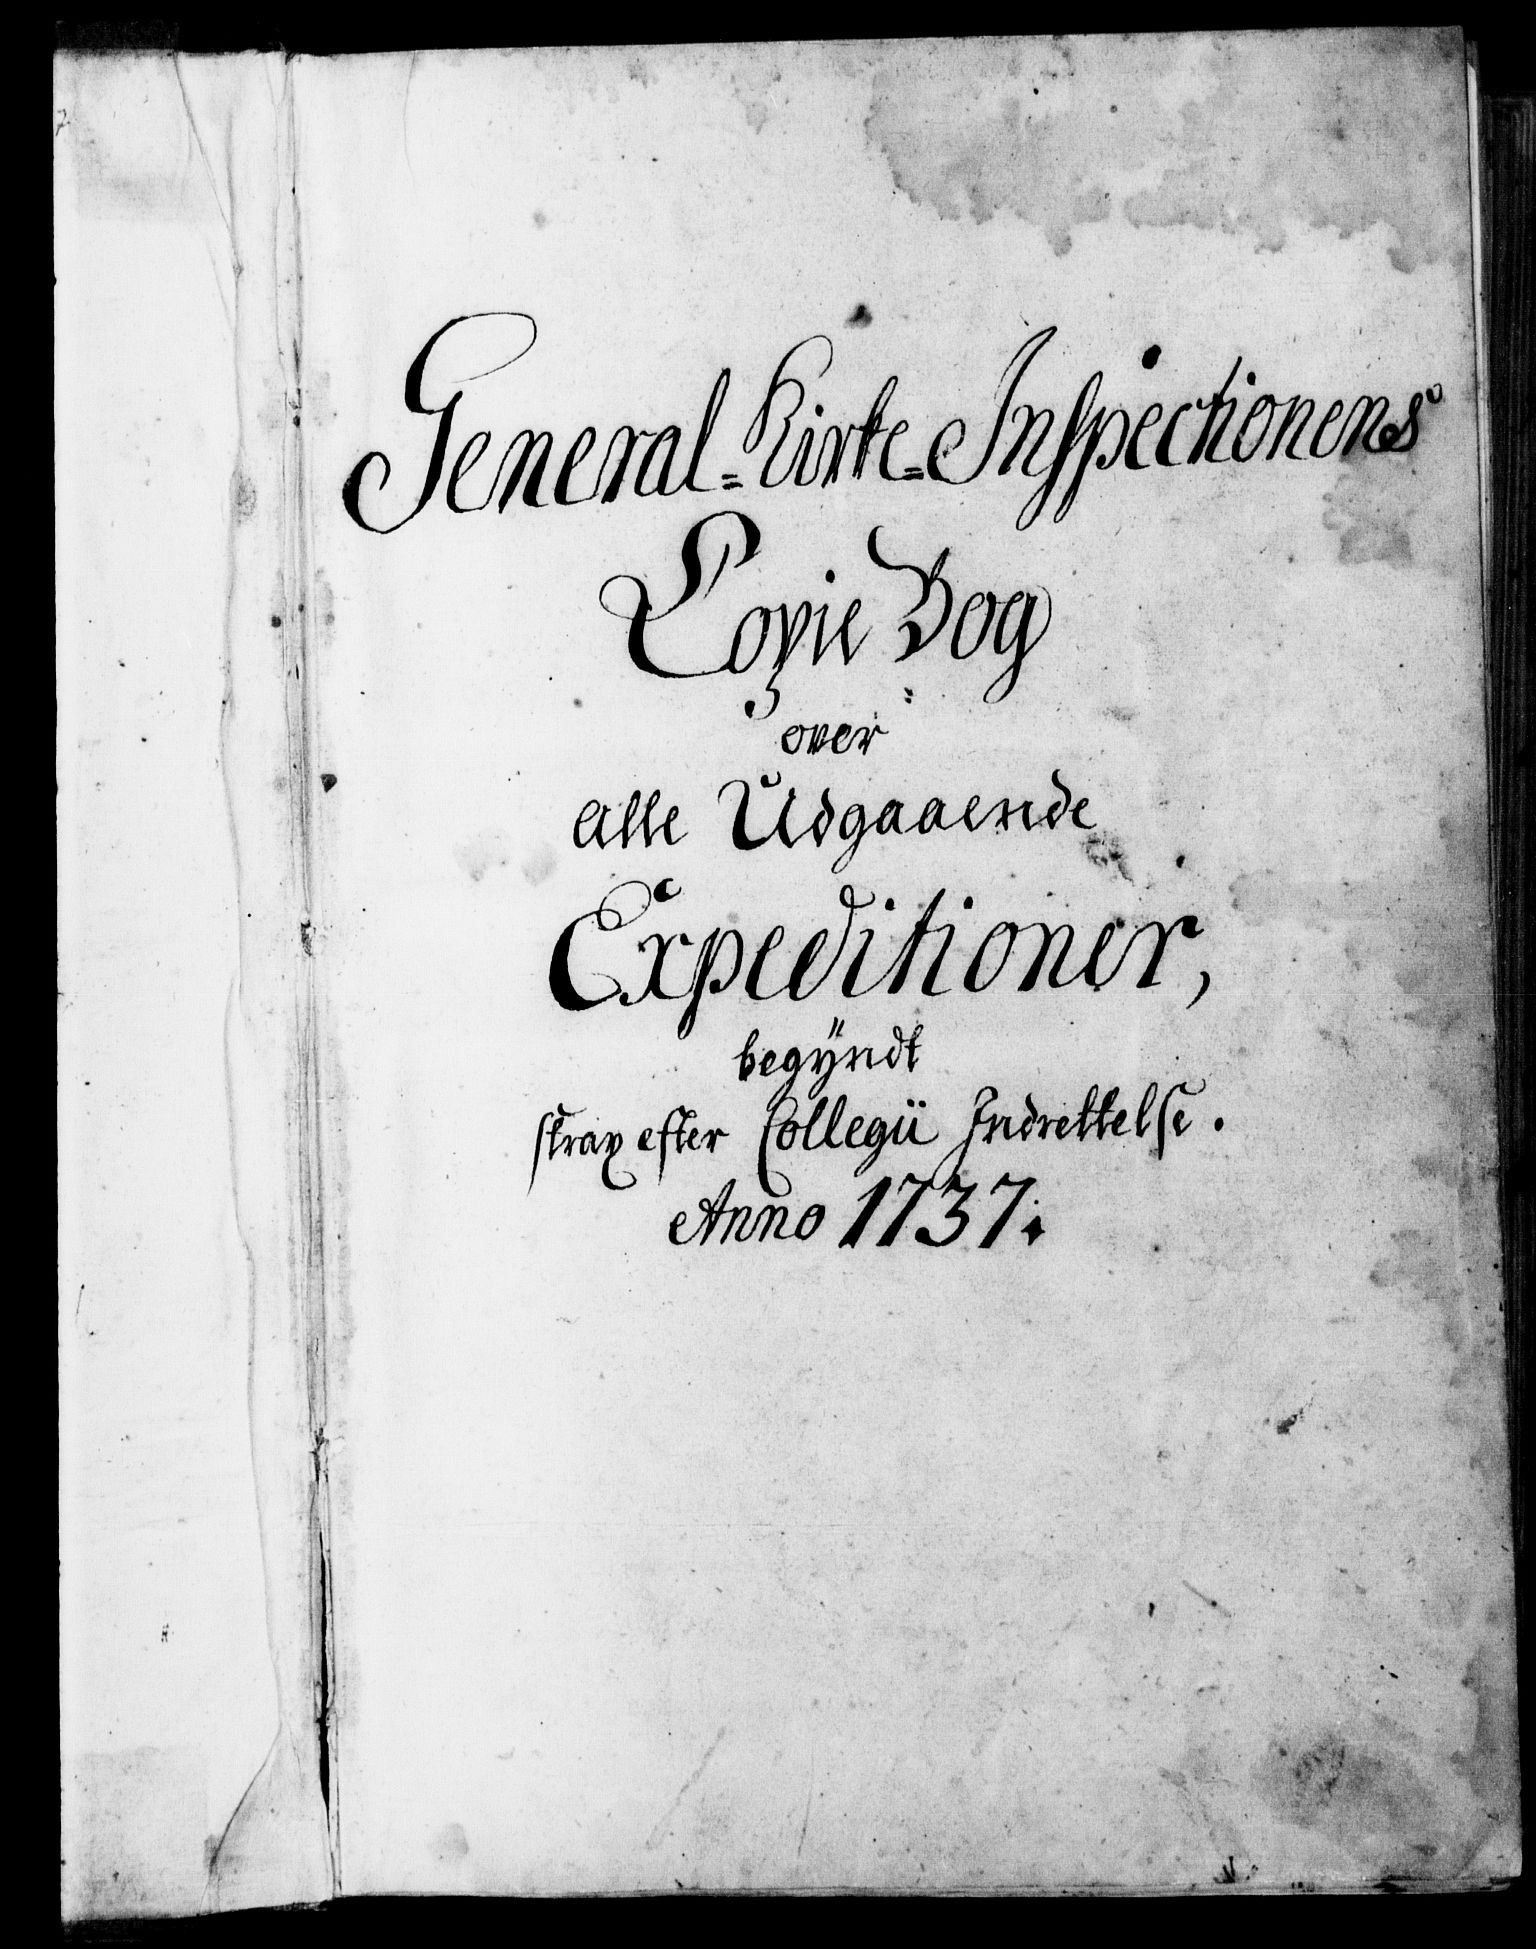 General=Kirke=Inspectionens
Copie Bog
over
alle Udgaaende
Expeditioner,
begÿndt
strax efter Collegii Indrettelse.
Anno 1737.